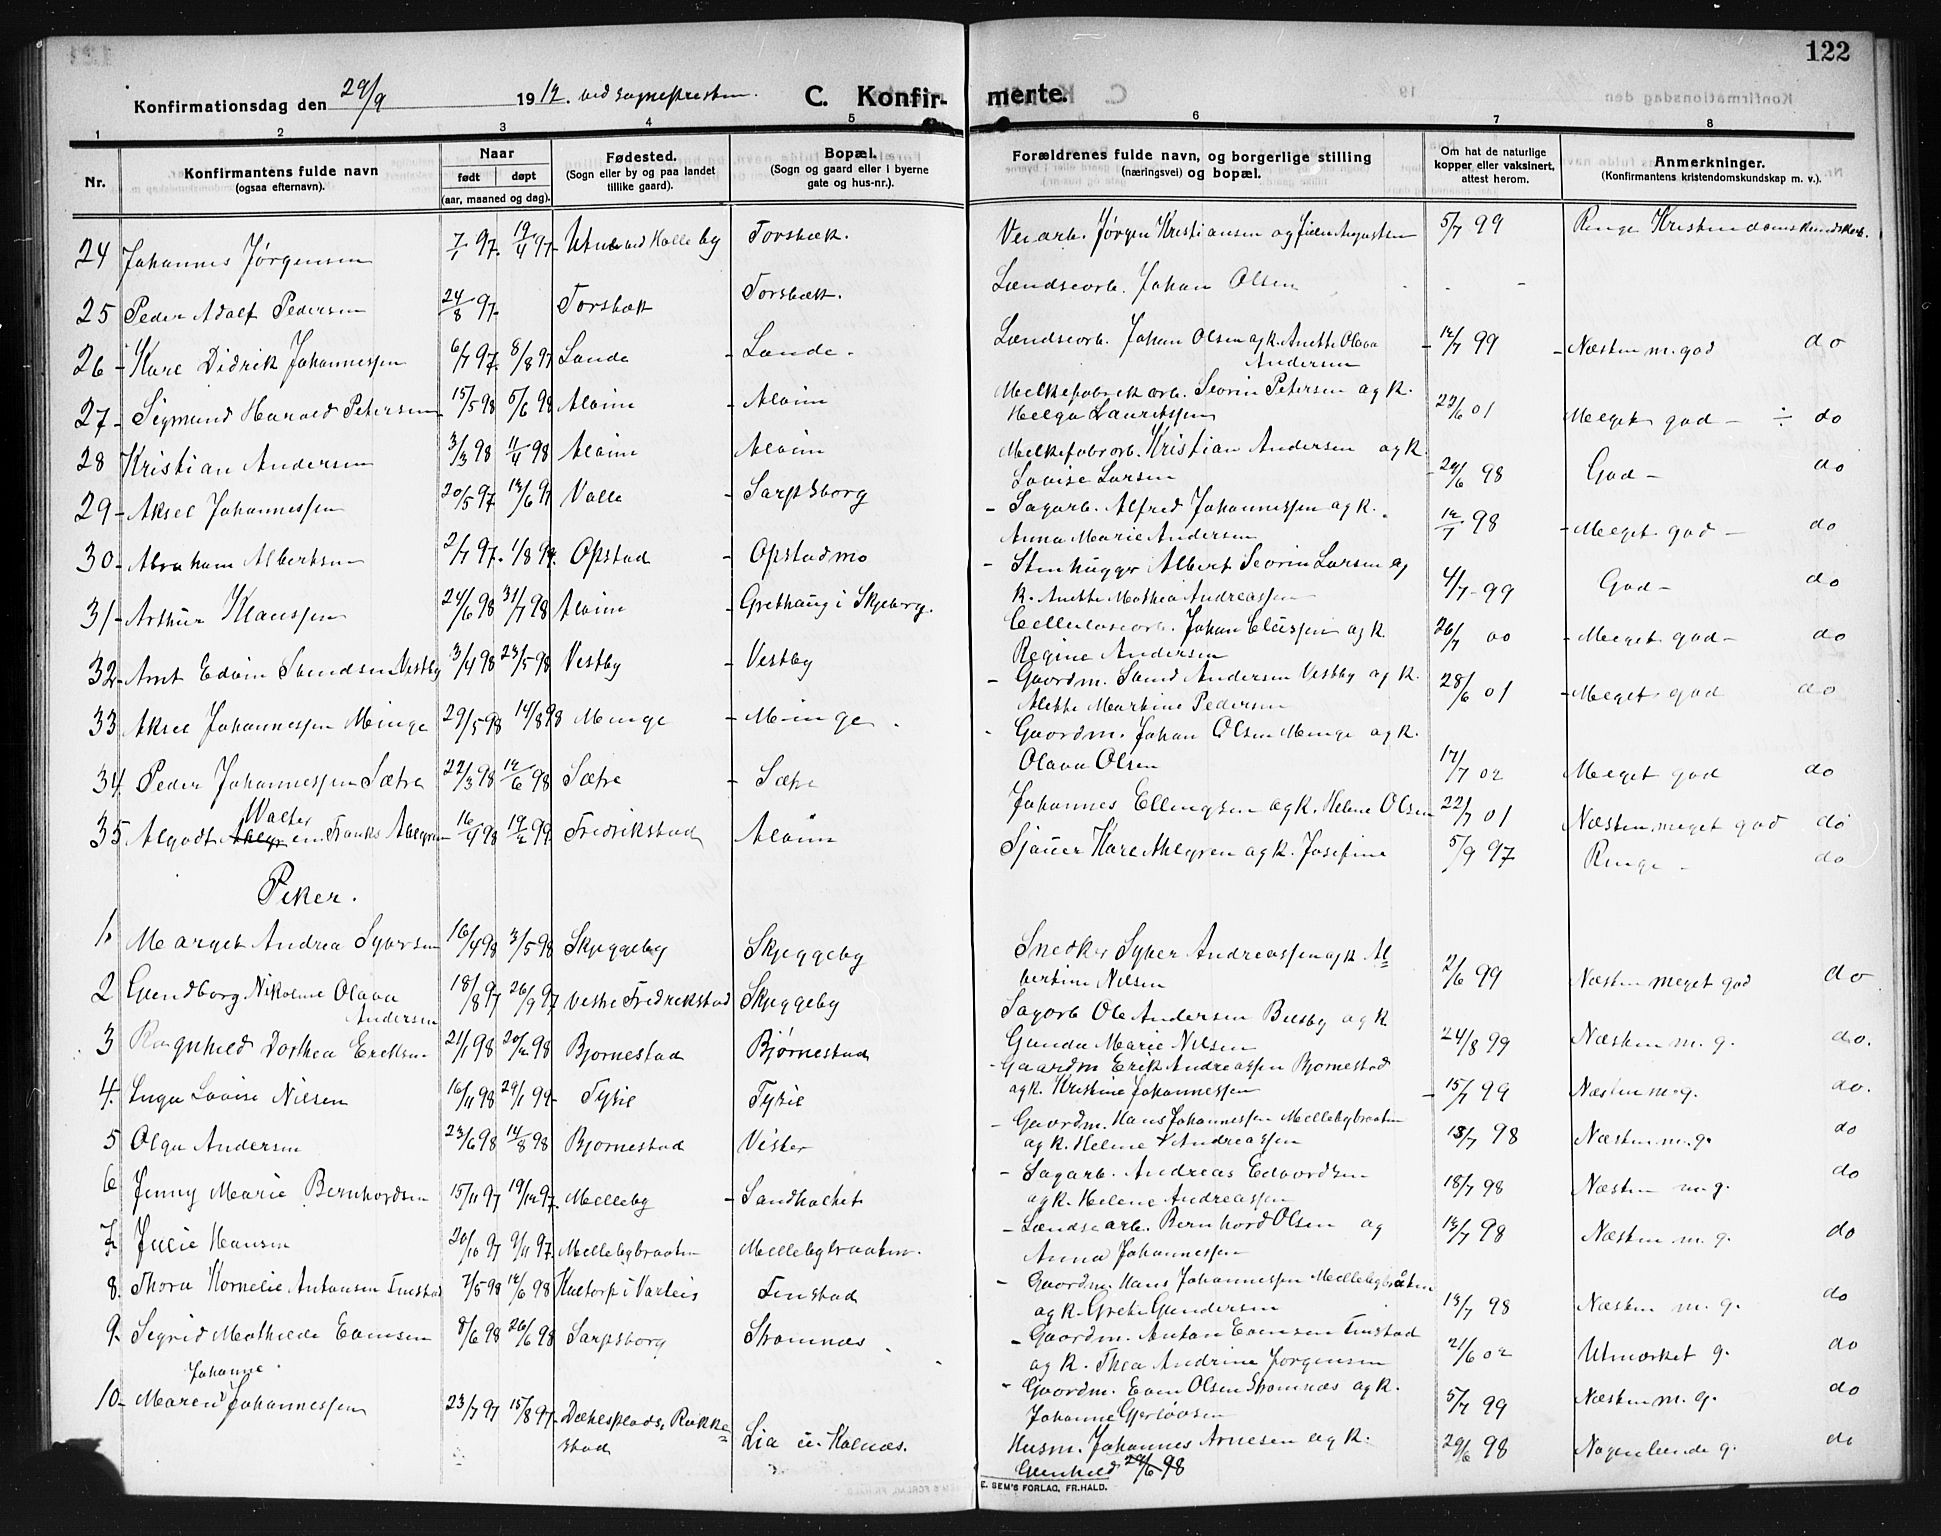 122
Konfirmationsdag den 29/9 1912. ved sognepresten. C. Konfir-merte.
1 2 3 4 5 6 7 8
Nr. Konfirmantens fulde navn (ogsaa efternavn). Naar født døpt (aar, maaned og dag). Fødested. (Sogn eller by og paa landet tillike gaard). Bopæl. (Sogn og gaard eller i byerne gate og hus-nr.). Forældrenes fulde navn, og borgerlige stilling (næringsvei) og bopæl. Om hat de naturlige kopper eller vaksinert, attest herom. Anmerkninger. (Konfirmantens kristendomskundskap m. v.).
24 Johannes Jørgensen 7/1 97. 19/4 97 ved Kalleby Torsbæk. Veiarb. Jørgen Kristiansen og 5/7 99 Ringe Kristendomskundskab.
25 Peder Adolf Pedersen 24/8 97. Torsbæk Torsbæk. Lændsearb. Johan Olsen - - -
26 - Karl Didrik Johannessen 6/7 97. 8/8 97 Lande - Lande. Lændsearb. Johan Olsen og k. Anette Olava Andersen - 12/7 99 - Næsten m. god do
27 - Sigmund Harald Petersen 15/5 98 5/6 98 Alvim - Alvim Melkefabrikarb. Severin Petersen og k. Helga Lauritssen 22/6 01 Meget god - ÷ do
28 Kristian Andersen 3/3 98 11/4 98 Alvim Alvim Melkefabrarb. Kristian Andersen og k. Lovise Larsen - 29/6 98 God - do
29 - Aksel Johannessen 20/5 97 13/6 97 Valle - Sarpsborg - Sagarb. Alfred Johannessen og k. Anna Marie Andersen 12/7 98 - Meget god - do
30 - Abraham Albertsen 2/7 97. 1/8 97. Opstad - Opstadmo - Stenhugger Albert Severin Larsen og k. Anette Mathea Andreassen 4/7 99 God - do
31 - Arthur Klaussen 24/6 98 31/7 98 Alvim - Grethaug i Skjeberg. Cellulosearb. Johan Clausen og k. Regine Andersen 26/7 00 - Meget god - do
32 - Arnt Edvin Svendsen Vestby 3/4 98 23/5 98 Vestby - Vestby - Gaardm. Svend Andersen Vestby og k. Alette Martine Pedersen 28/6 01 - Meget god do
33 Aksel Johannessen Minge 29/5 98 14/8 98 Minge - Minge. - Gaardm. Johan Olsen Minge og k. Olava Olsen 17/7 02 Meget god do
34 Peder Johannessen Sætre 22/3 98 12/6 98 Sætre - Sætre Johannes Ellingsen og k. Helene Olsen 22/7 01 Næsten meget god do
35. Algodt Walter Franks Ahlgren 16/4 98 19/2 99 Fredrikstad Alvim Sjauer Karl Ahlgren og k. Josefine 5/9 97 Ringe - do
Piker.
1. Marget Andrea Syversen 16/4 98 3/5 98 Skjeggeby Skjeggeby Snedker Syver Andreassen og k. Albertine Nilsen 2/6 99 Næsten meget god do
2 Gundborg Nikoline Olava Andersen 18/8 97 26/9 97 Vestre Fredrikstad Skjeggeby Sagarb Ole Andersen Busby og k Gunda Marie Nilsen 24/8 99 Næsten m. g. do.
3 Ragnhild Dorthea Eriksen 21/1 98 20/2 98 Bjørnestad Bjørnestad - Gaardm Erik Andreassen Bjørnestad og k. Kristine Johannessen - 15/7 99 Næsten m. g. do.
4. Inga Lovise Nilsen 16/11 98 29/1 99 - Tyrie Tyrie - Gaardm. Hans Johannessen Mellebybraaten og k. Helene Andreassen 13/7 98 Næsten m. g. do
5 Olga Andersen 23/6 98 14/8 98 Bjørnestad Vister - Sagarb. Andreas Edvardsen og k. Helene Andreassen 18/7 98 Næsten m. g. do
6 Jenny Marie Bernhardsen 15/11 97 19/12 97. Melleby - Sandbakket - Lændsearb. Bernhard Olsen og Anna Johannessen 13/7 98 Næsten m. g. do
7. Julie Hansen 20/10 97 9/11 97. Mellebybraaten Mellebybraaten. - Gaardm. Hans Johannessen Mellebybråten og k. Grete Gundersen 13/7 98 Næsten m. g. do
8. Thora Kornelie Antonsen Tinstad 7/5 98 12/6 98 Kaltorp i Varteig Tinstad - Gaardm. Anton Evensen Tinstad og k. Thea Andrine Jørgensen 21/6 02 Utmærket g. do
9. Sigrid Mathilde Evensen 8/6 98 26/6 98 Sarpsborg Strømnæs. - Gaardm. Even Olsen Strømnæs og k. Johanne Gjerløvsen 5/7 99 Næsten m. g. do
10 - Maren Johanne Johannessen 23/7 97 15/8 97. Rakkestad Lia u. Kalnæs. Husm. Johannes Arnesen og k. Gunhild 29/6 98 29/6 98 Nogenlunde g. do
E. SEM'S FORLAG, FR.HALD.